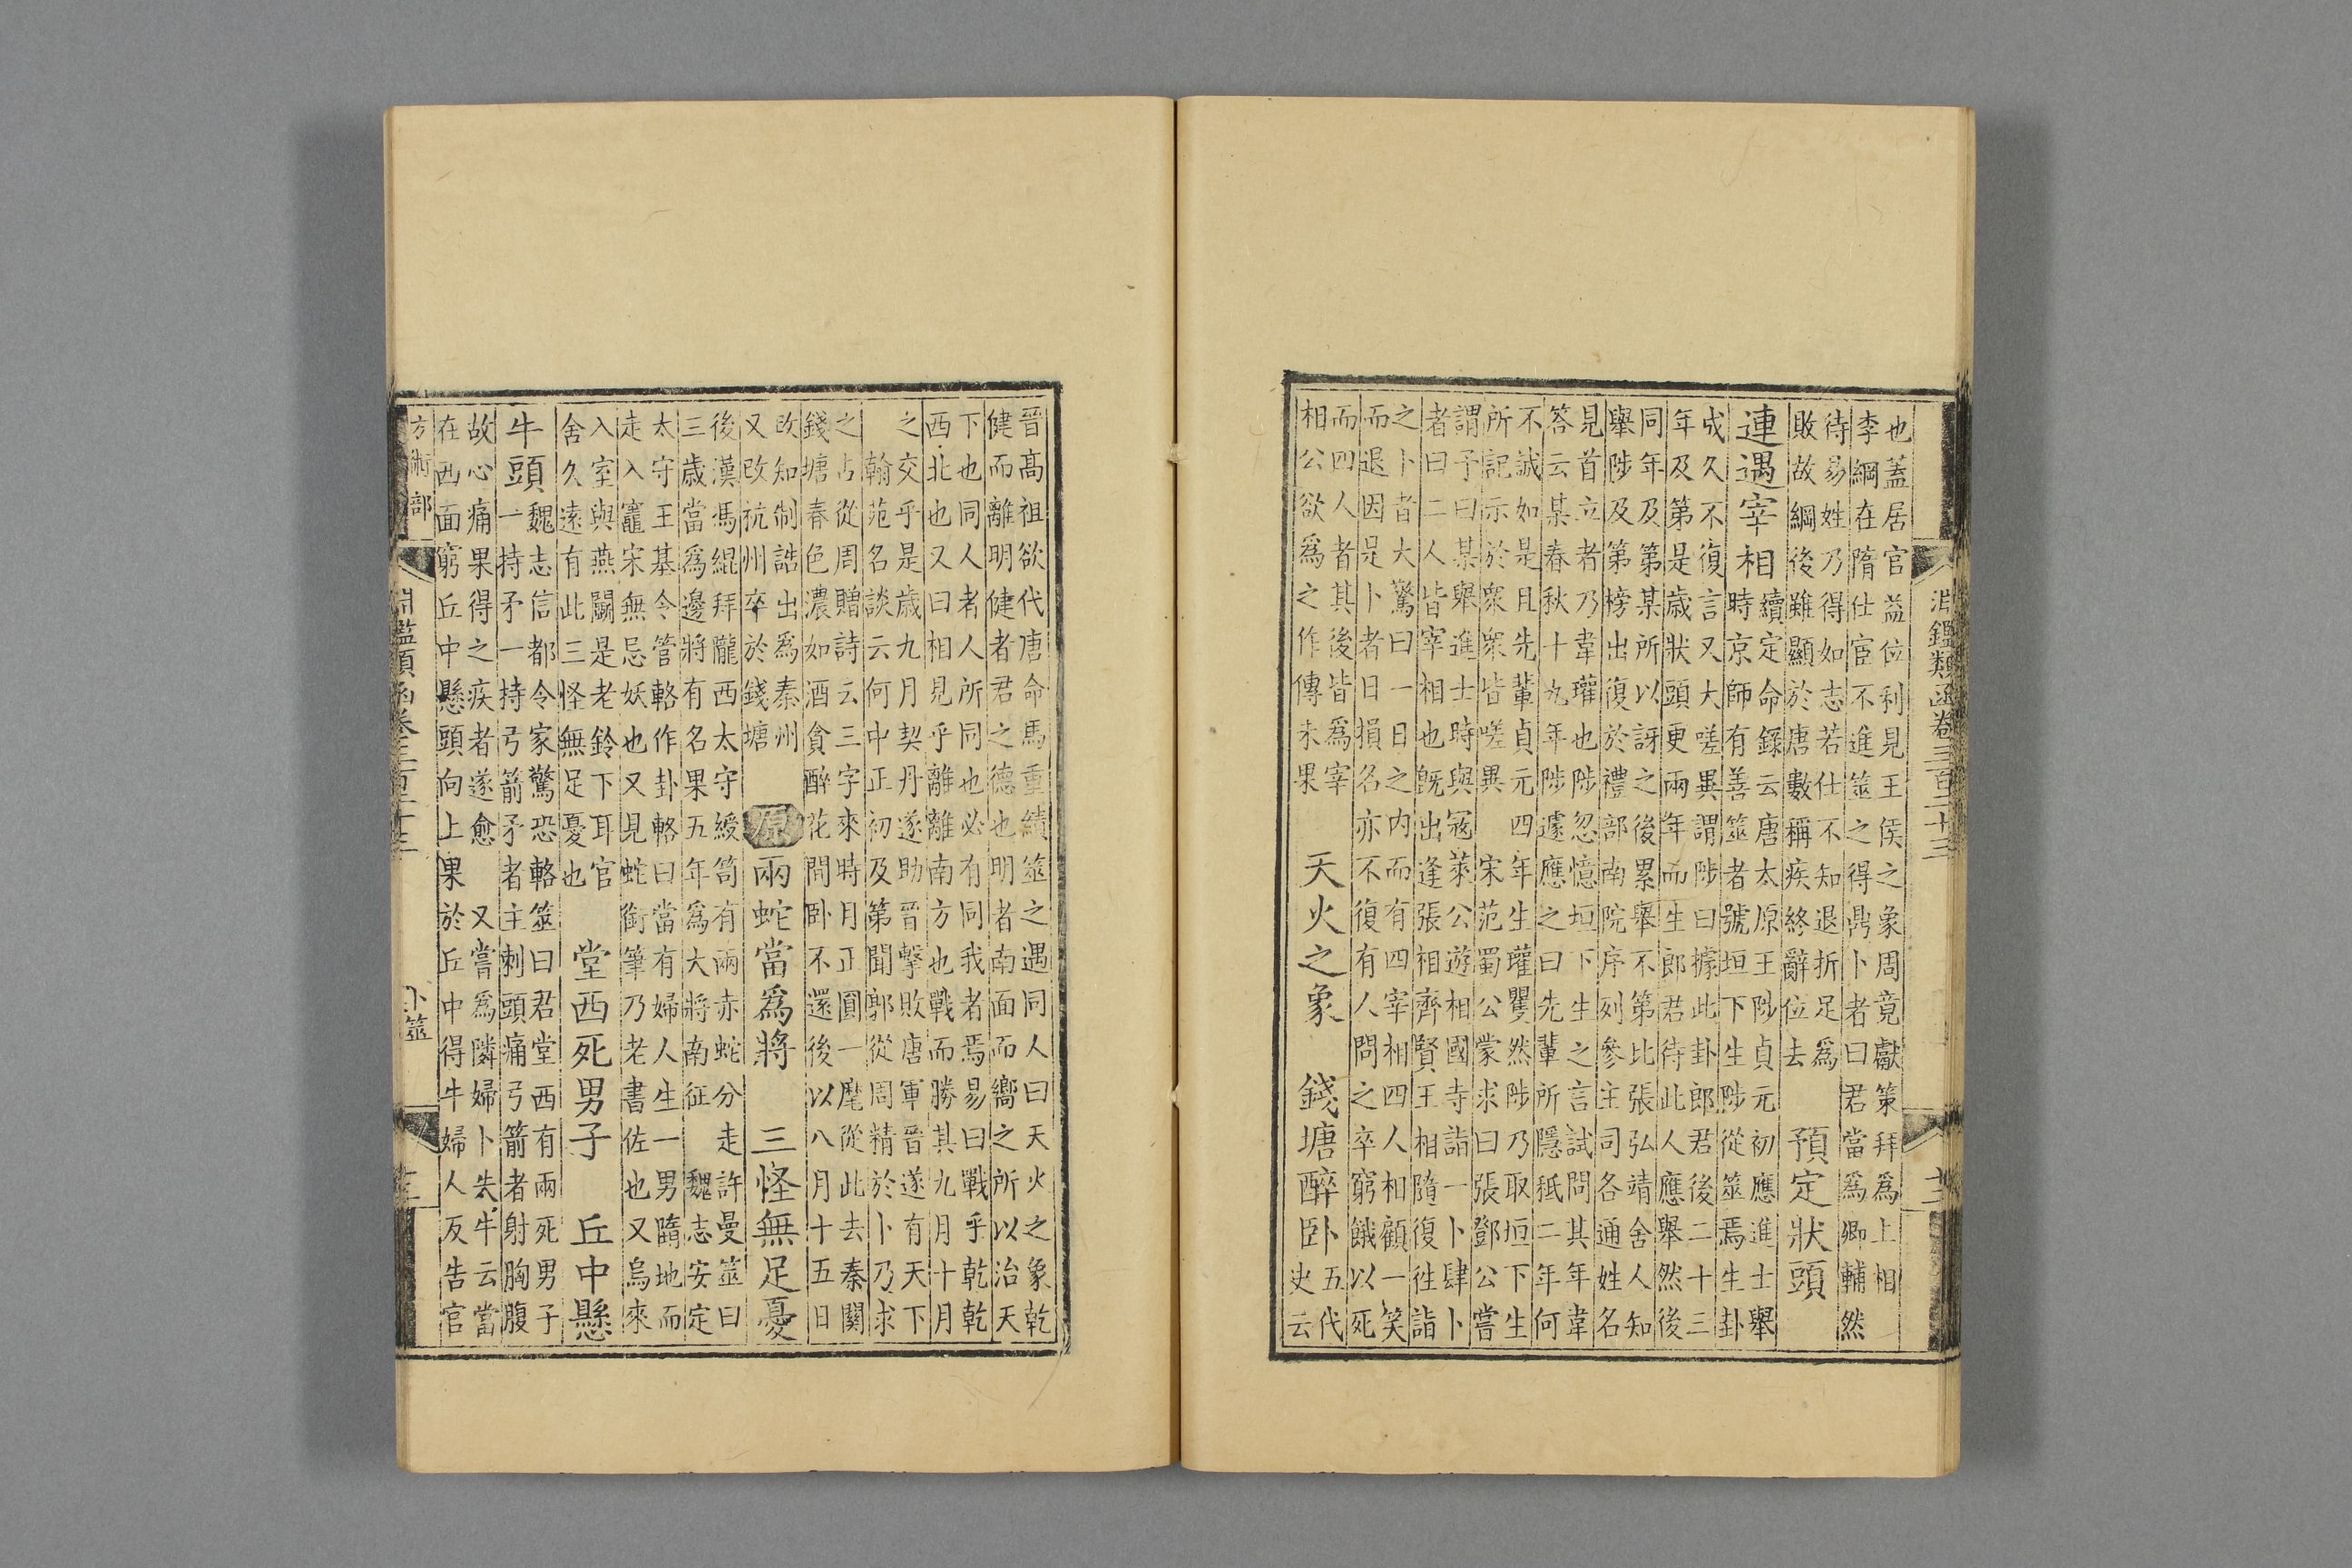 淵鑑類函卷三百二十三 十二
也蓋居官益位利見王侯之象周竟獻策拜爲上相
李綱在隋仕宦不進筮之得鼎卜者曰君當爲卿輔然
待易姓乃得如志若仕不知退折足爲
敗故綱後雖顯於唐數稱疾終辭位去
預定狀頭
連遇宰相
續定命錄云唐太原王陟貞元初應進士舉
時京師有善筮者號垣下生陟從筮焉生卦
成久不復言又大嗟異謂陟曰據此卦郎君後二十三
年及第是歲狀頭更兩年而生郎君待此人應舉然後
同年及第某所以訝之後累舉不第比張弘靖舍人知
舉陟及第榜出復於禮部南院序列參主司各通姓名
見首立者乃韋瓘也陟忽憶垣下生之言試問其年韋
答云某春秋十九年陟遽應之曰先輩所隱秖二年何
不誠如是且先輩貞元四年生瓘矍然陟乃取垣下生
所記示於衆衆皆嗟異 宋范蜀公蒙求曰張鄧公嘗
謂予曰某舉進士時與寇萊公遊相國寺詣一卜肆卜
者曰二人皆宰相也旣出逢張相齊賢王相隨復往詣
之卜者大驚曰一日之内而有四宰相四人相顧一笑
而退因是卜者日損名亦不復有人問之卒窮餓以死
而四人者其後皆爲宰
相公欲爲之作傳未果
天火之象 錢塘醉卧
五代
史云
晉高祖欲代唐命馬重績筮之遇同人曰天火之象乾
健而離明健者君之德也明者南面而嚮之所以治天
下也同人者人所同也必有同我者焉易曰戰乎乾乾
西北也又曰相見乎離離南方也戰而勝其九月十月
之交乎是歲九月契丹遂助晉擊敗唐軍晉遂有天下
翰苑名談云何中正初及第聞郭從周精於卜乃求
之占從周贈詩云三字來時月正圓一麾從此去秦關
錢塘春色濃如酒貪醉花間卧不還後以八月十五日
改知制誥出爲秦州
又改杭州卒於錢塘
原 兩蛇當爲將 三怪無足憂
後漢馮緄拜隴西太守綬笥有兩赤蛇分走許曼筮曰
三歲當爲邊將有名果五年爲大將南征 魏志安定
太守王基令管輅作卦輅曰當有婦人生一男墮地而
走入竈宋無忌妖也又見蛇銜筆乃老書佐也又烏來
入室與燕鬭是老鈴下耳官
舍久遠有此三怪無足憂也
堂西死男子 丘中懸
牛頭
魏志信都令家驚恐輅筮曰君堂西有兩死男子
一持矛一持弓箭矛者主刺頭痛弓箭者射胸腹
故心痛果得之疾者遂愈 又嘗爲隣婦卜失牛云當
在西面窮丘中懸頭向上果於丘中得牛婦人反告官
方術部 淵鑑類函卷三百二十三 卜筮